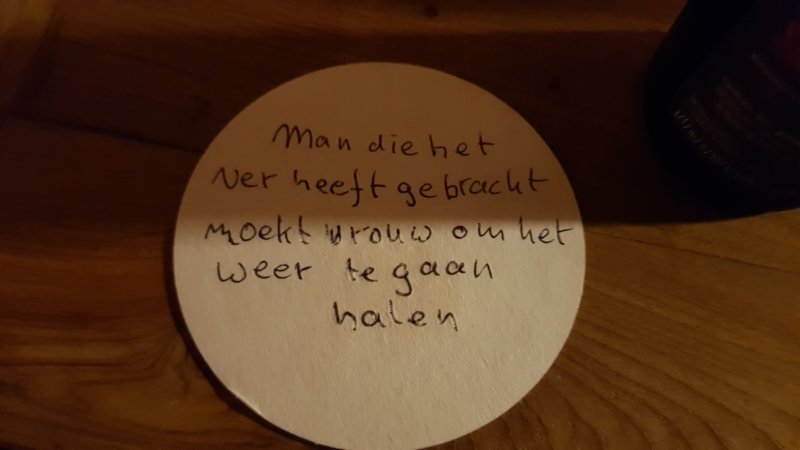 Man die het
ver heeft gebracht
zoekt vrouw om het
weer te gaan
halen